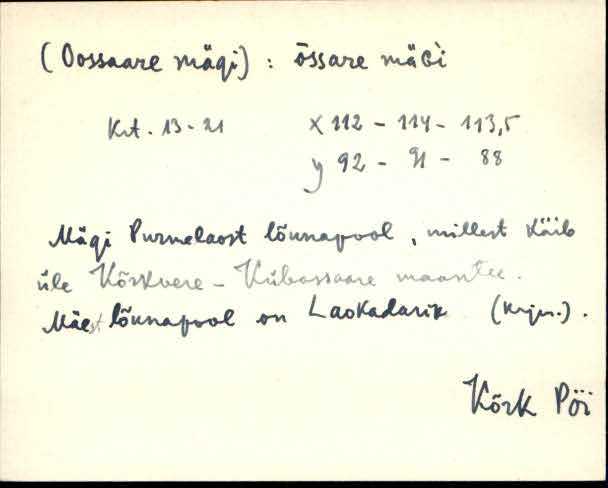 (Oossaare mägi) : õssare mäG̀i
Krt. 13-21 x 112 - 114 - 113,5
y 92 - 91 - 88
Mägi Purmelaost lõunapool, millest käib
üle Kõrkvere - Kübassaare maantee.
Mäest lõunapool on Laokadarik (krjm.).
Kõrk Pöi